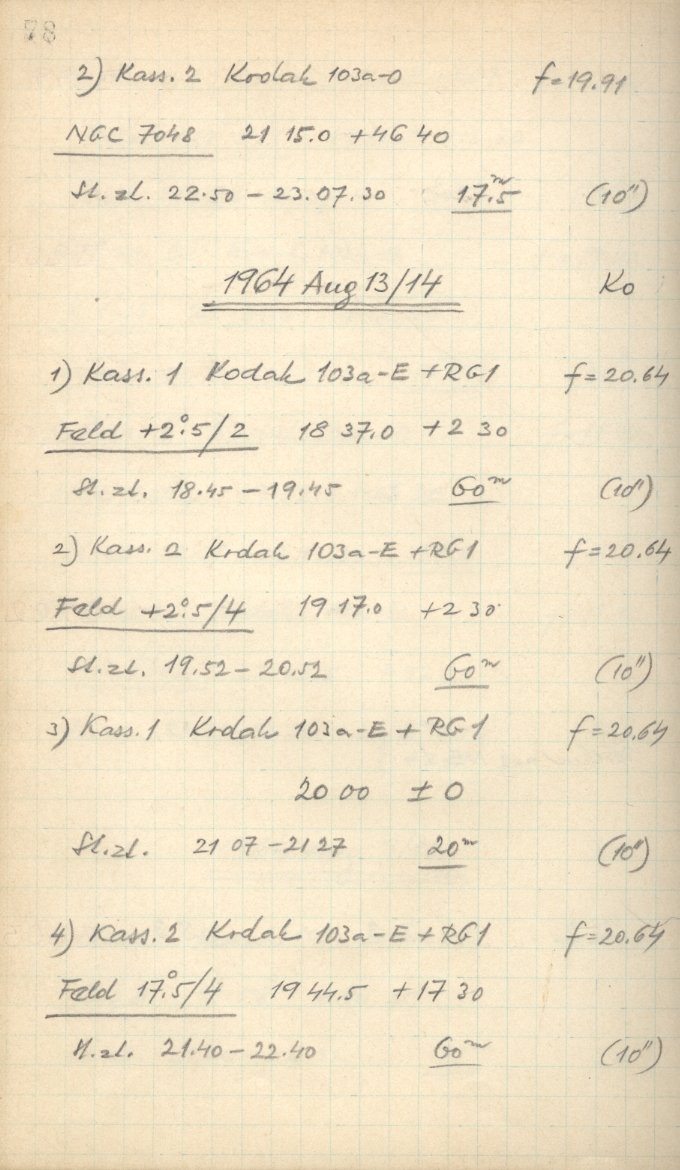 78
2) Kass. 2 Kodak 103a-O f=19.91
NGC 7048 21 15.0 +46 40
St. zt. 22.50 – 23.07.30 17.ᵐ5 (10")
1964 Aug 13/14 Ko
1) Kass. 1 Kodak 103a-E +RG1 f=20.64
Feld +2°.5/2 18 37.0 +2 30
St. zt. 18.45 – 19.45 60ᵐ (10")
2) Kass. 2 Kodak 103a-E +RG1 f=20.64
Feld +2°.5/4 19 17.0 +2 30
St. zt. 19.52 – 20.52 60ᵐ (10")
3) Kass. 1 Kodak 103a-E + RG1 f=20.64
20 00 ± 0
St. zt. 21 07 – 21 27 20ᵐ (10")
4) Kass. 2 Kodak 103a-E + RG1 f=20.64
Feld 17°.5/4 19 44.5 +17 30
St. zt. 21.40 – 22.40 60ᵐ (10")